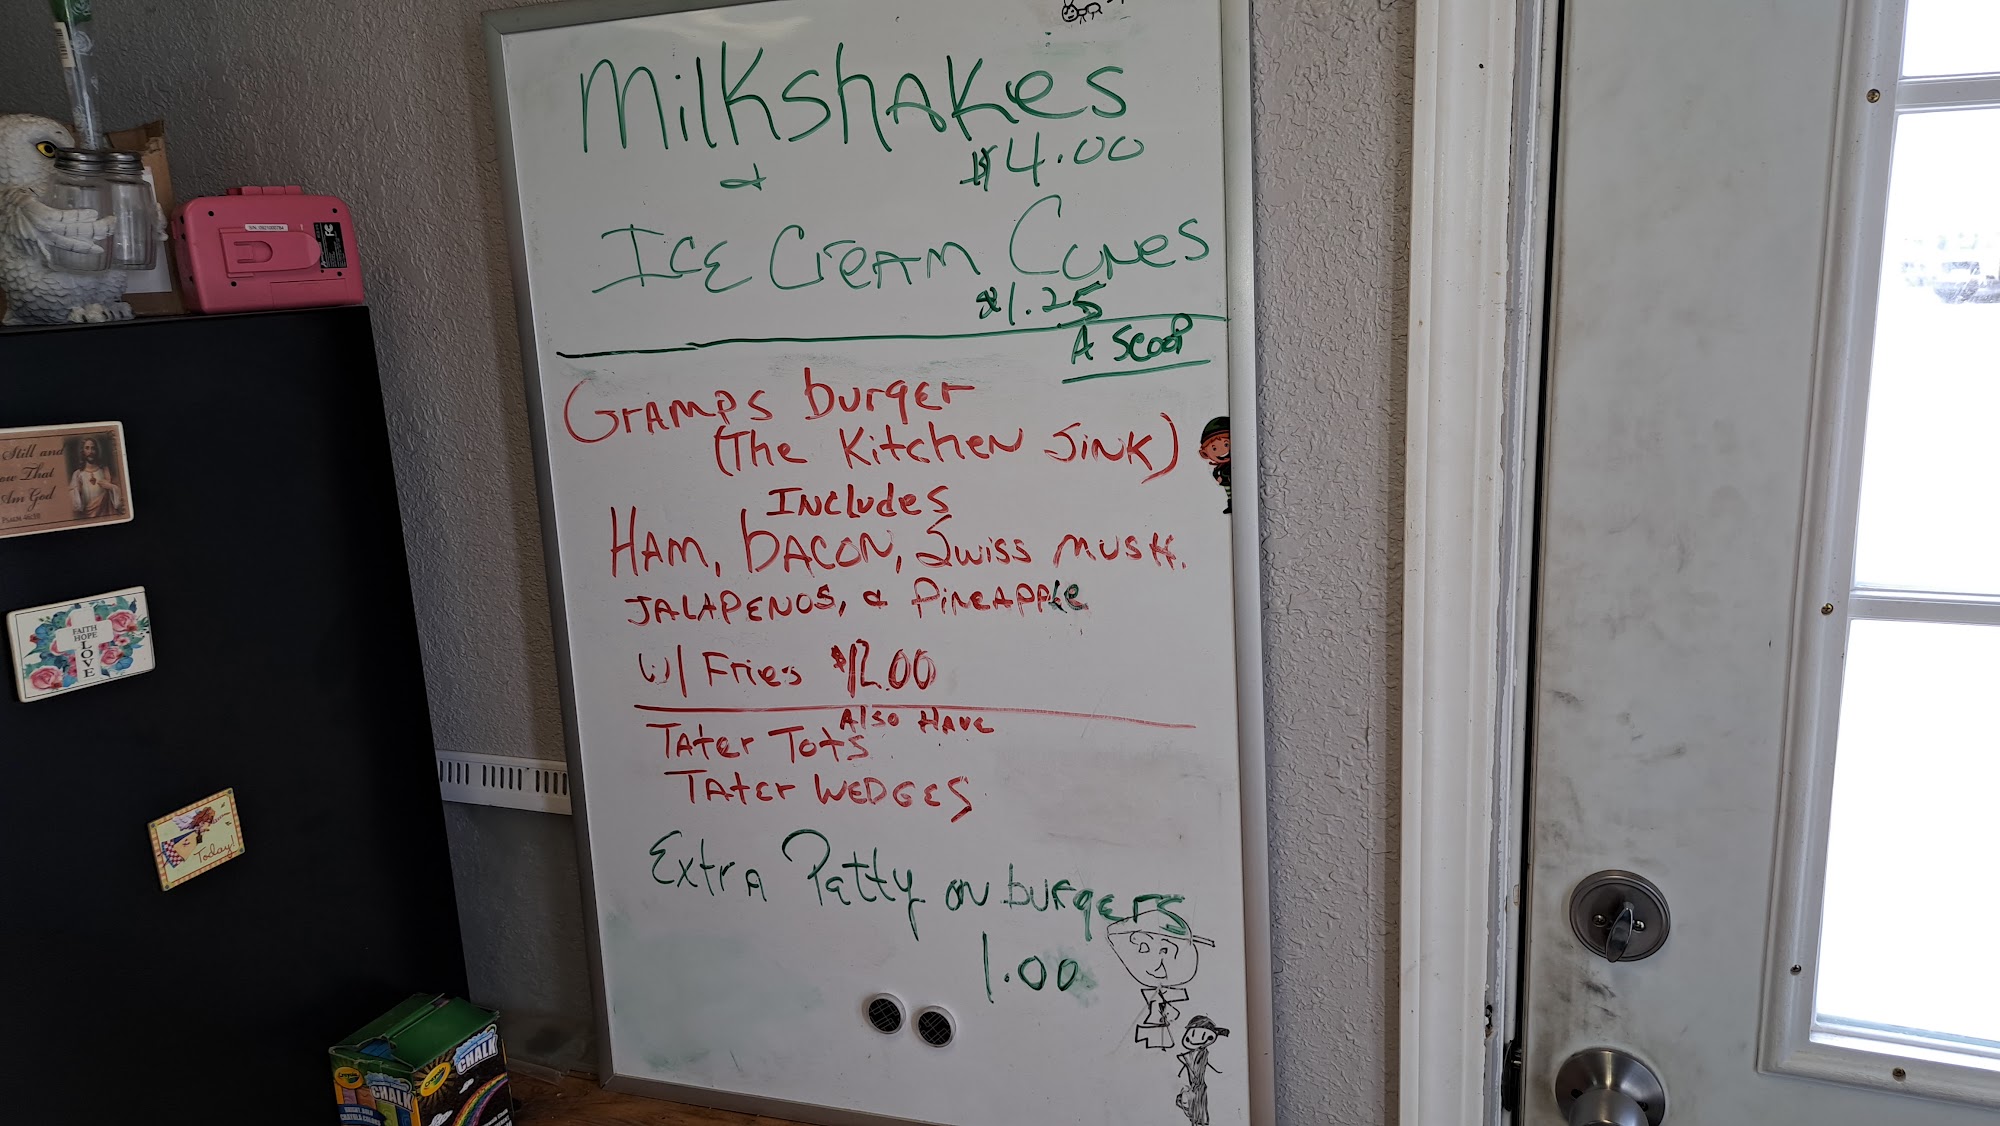 Milkshakes
$4.00
&
Ice Cream Cones
$1.25
A Scoop
Gramps burger
(The Kitchen Sink)
Includes
Ham, bacon, Swiss mush.
Jalapenos, & Pineapple
w/ Fries $12.00
Also Have
Tater Tots
Tater Wedges
Extra Patty on burgers
1.00
Still and
That
Am God
PSALM 46:10
FAITH
HOPE
LOVE
Today!
FC
Crayola
CHALK
Crayola
CHALK